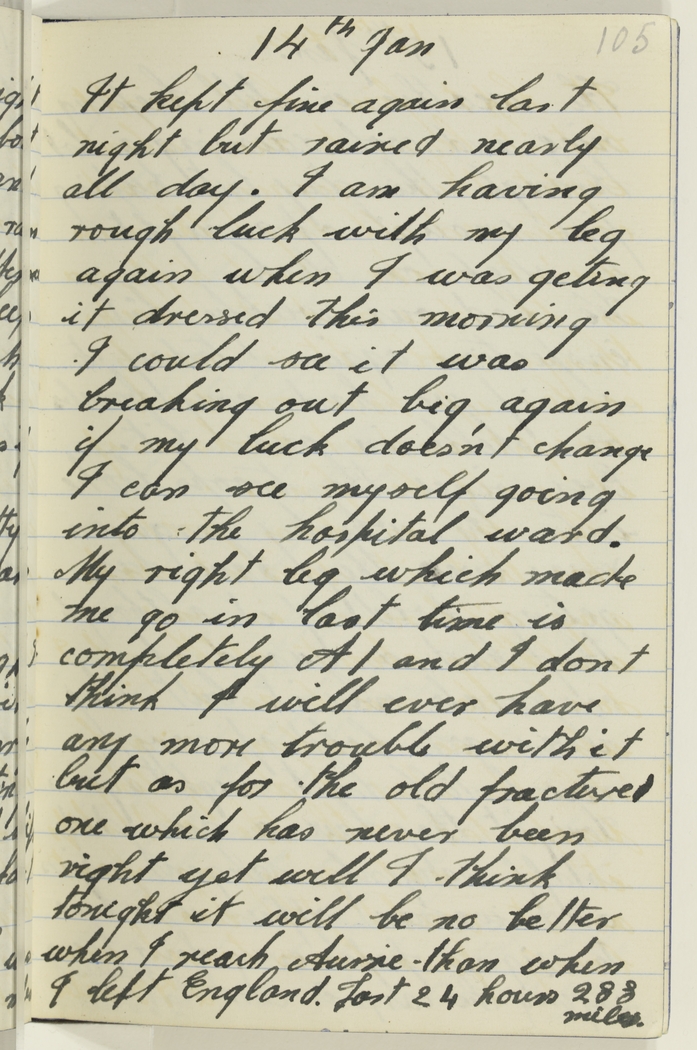 14th Jan
105
It kept fine again last
night but rained nearly
all day. I am having
rough luck with my leg
again when I was geting
it dressed this morning
I could see it was
breaking out big again
if my luck doesn't change
I can see myself going
into the hospital ward.
My right leg which made
me go in last time is
completely A1 and I dont
think I will ever have
any more trouble with it
but as for the old fractured
one which has never been
right yet well I think
tonight it will be no better
when I reach Aussie than when
I left England. Last 24 hours 283
miles.